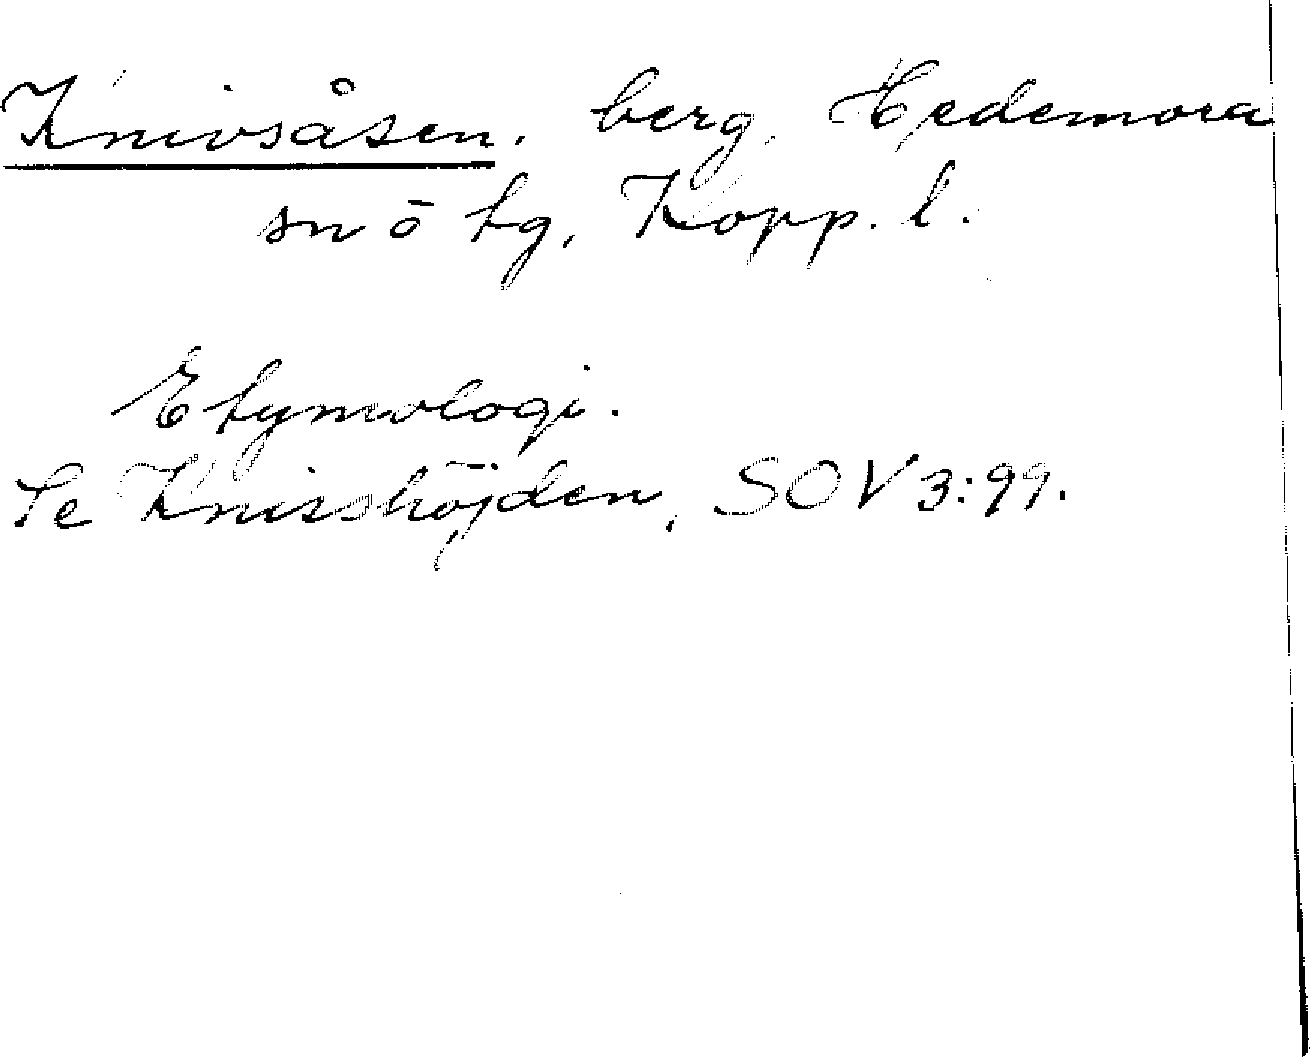 Knivsåsen, berg, Hedemora
sn ō tg, Kopp. l.
Etymologi.
Se Knivshöjden, SOV 3:99.